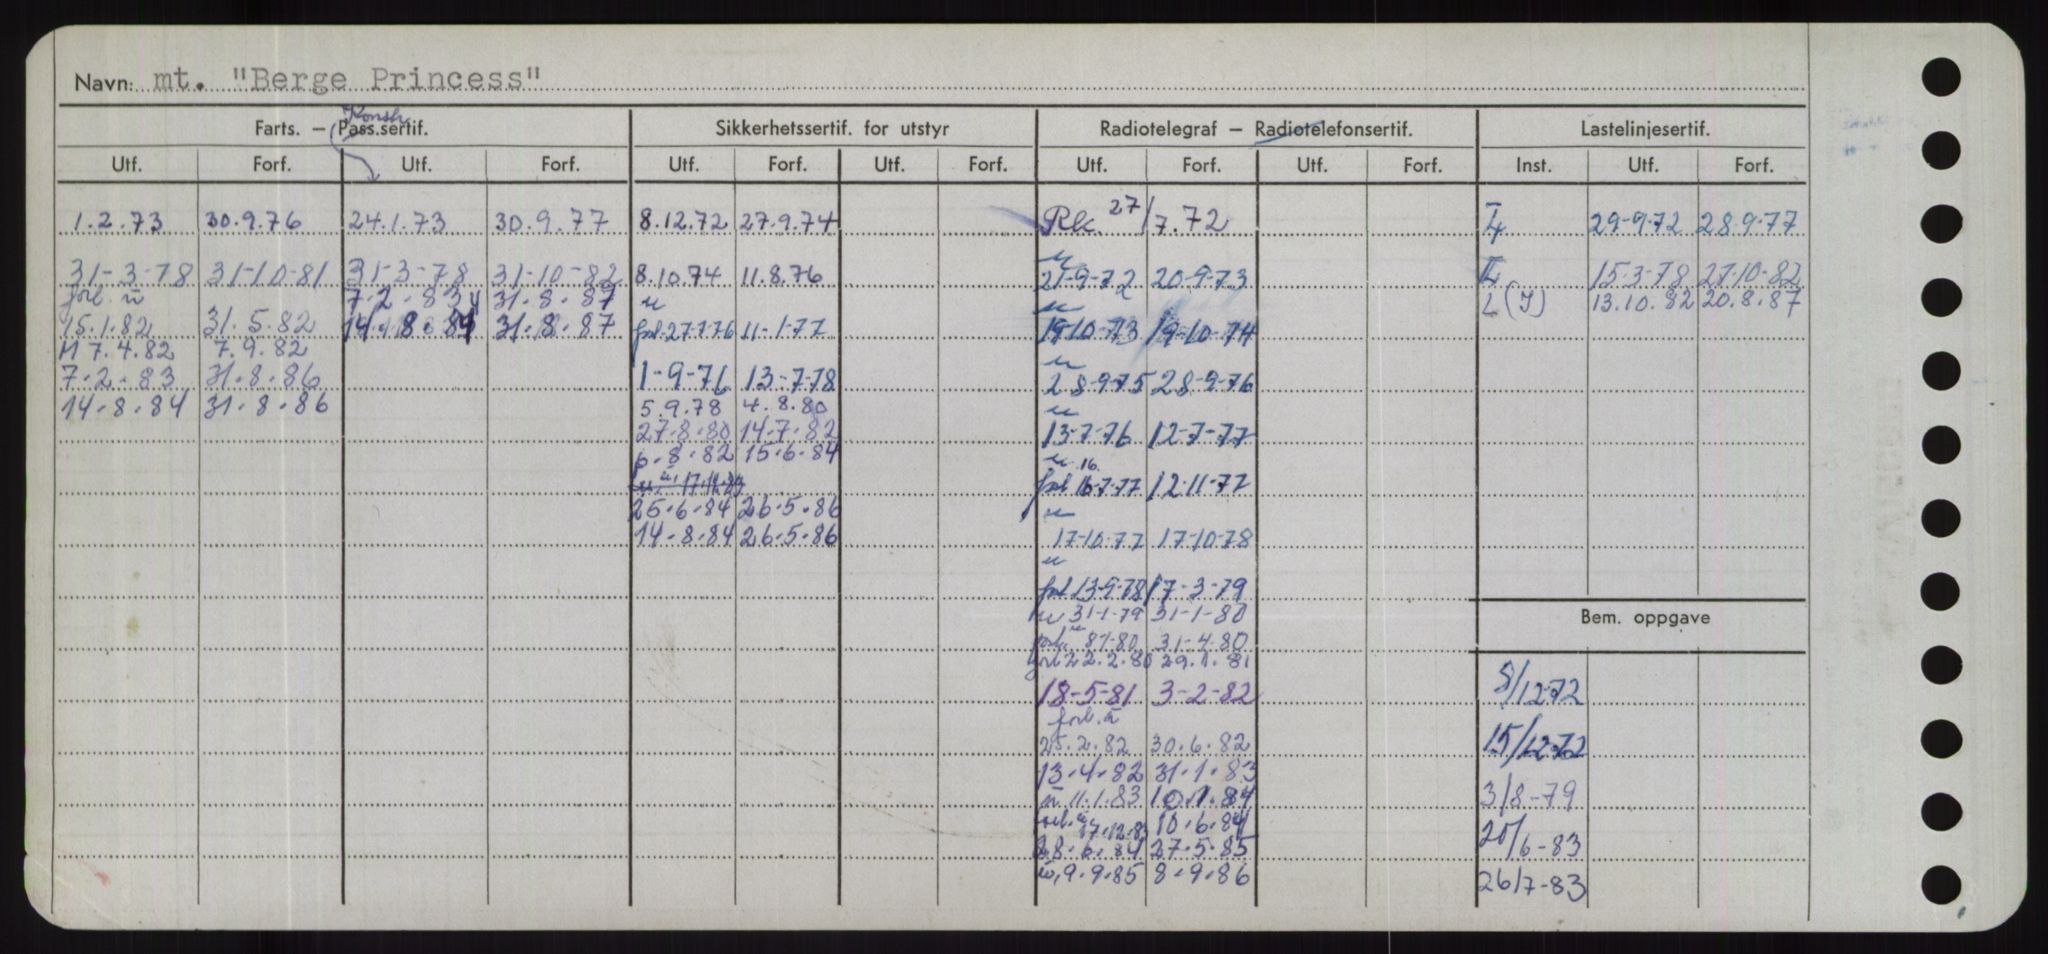 Navn: mt. "Berge Princess"
Konstr.
Farts. – Pass.sertif. Sikkerhetssertif. for utstyr Radiotelegraf – Radiotelefonsertif. Lastelinjesertif.
Utf. Forf. Utf. Forf. Utf. Forf. Utf. Forf. Utf. Forf. Utf. Forf. Inst. Utf. Forf.
1.2.73 30.9.76 24.1.73 30.9.77 8.12.72 27.9.74 Rk. 27/7.72 29-9-72 28.9-77
u
31-3-78 31-10-81 31-3-78 31-10-82 8.10.74 11.8.76 21-9-72 20-9-73 15.3-78 27.10-82
forl. u 7.2.83 31.8.87 u u L(I) 13.10.82 20.8.87
15.1.82 31.5.82 14.8.84 31.8.87 forl. 27-7-76 11-1-77 19-10-73 19-10-74
M 7.4.82 7.9.82 u
7.2.83 31.8.86 1-9-76 13-7-78 28-9-75 28-9-76
14.8.84 31.8.86 5.9.78 4.8.80 u
27.8.80 14.7.82 13-7-76 12-7-77
6.8.82 15.6.84 u 16.
u. 17.12.83 forl 16-7-77 12-11-77
25.6.84 26.5.86 u
14.8.84 26.5.86 17-10-77 17-10-78
u
forl 13-9-78 17-3-79
u 31-1-79 31-1-80 Bem. oppgave
forl. u 8-1-80 31-4-80
forl 22.2.80 29.1.81
18-5-81 3-2-82 8/12-72
forl. u
25.2.82 30.6.82 15/12-72
13.4.82 31.1.83
u 11.1.83 10.1.84 3/8-79
forl. u 17.12.83 10.6.84
28.6.84 27.5.85 20/6-83
u, 9.9.85 8.9.86 26/7-83